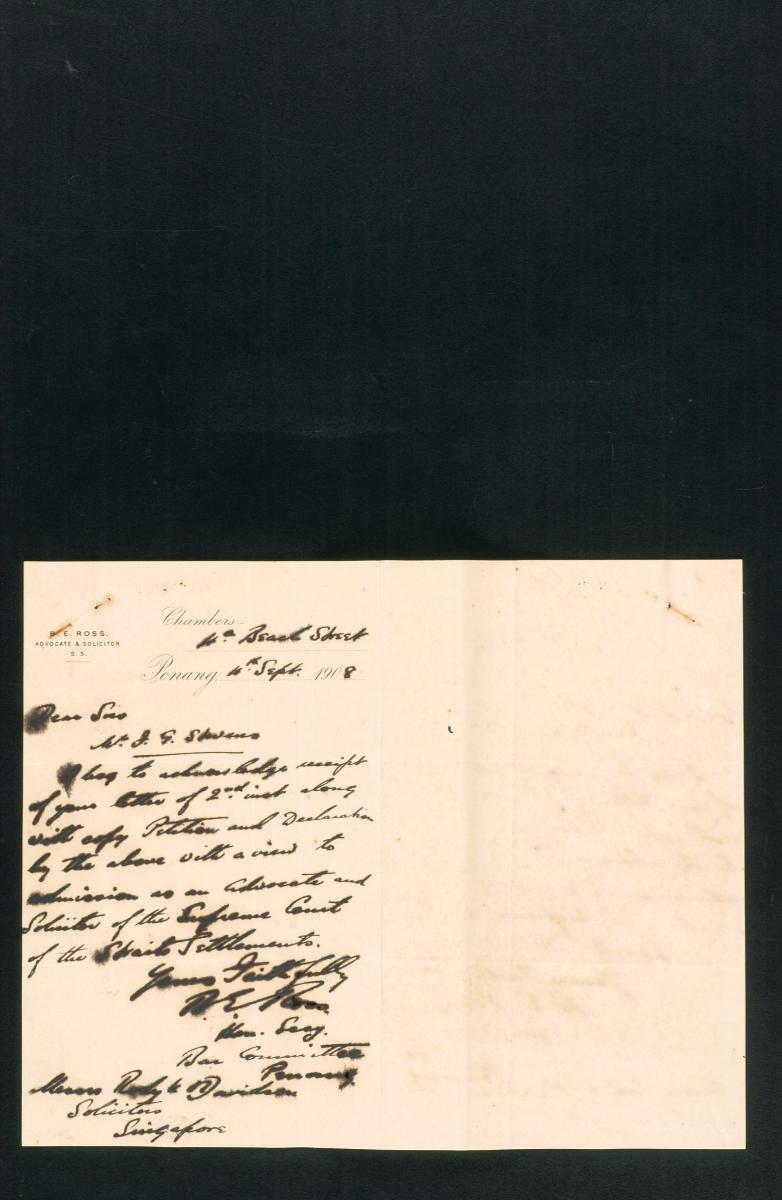 Chambers:-
4a Beach Street
R. E. ROSS,
ADVOCATE & SOLICITOR
S. S.
Penang, 4th Sept. 1908
Dear Sirs
Mr. J. G. Stevens
I beg to acknowledge receipt
of your letter of 2nd inst along
with copy Petition and Declaration
by the above with a view to
admission as an Advocate and
Solicitor of the Supreme Court
of the Straits Settlements.
Yours Faithfully
R E Ross
Hon. Secy.
Bar Committee
Penang
Messrs Rodyk & Davidson
Solicitors
Singapore